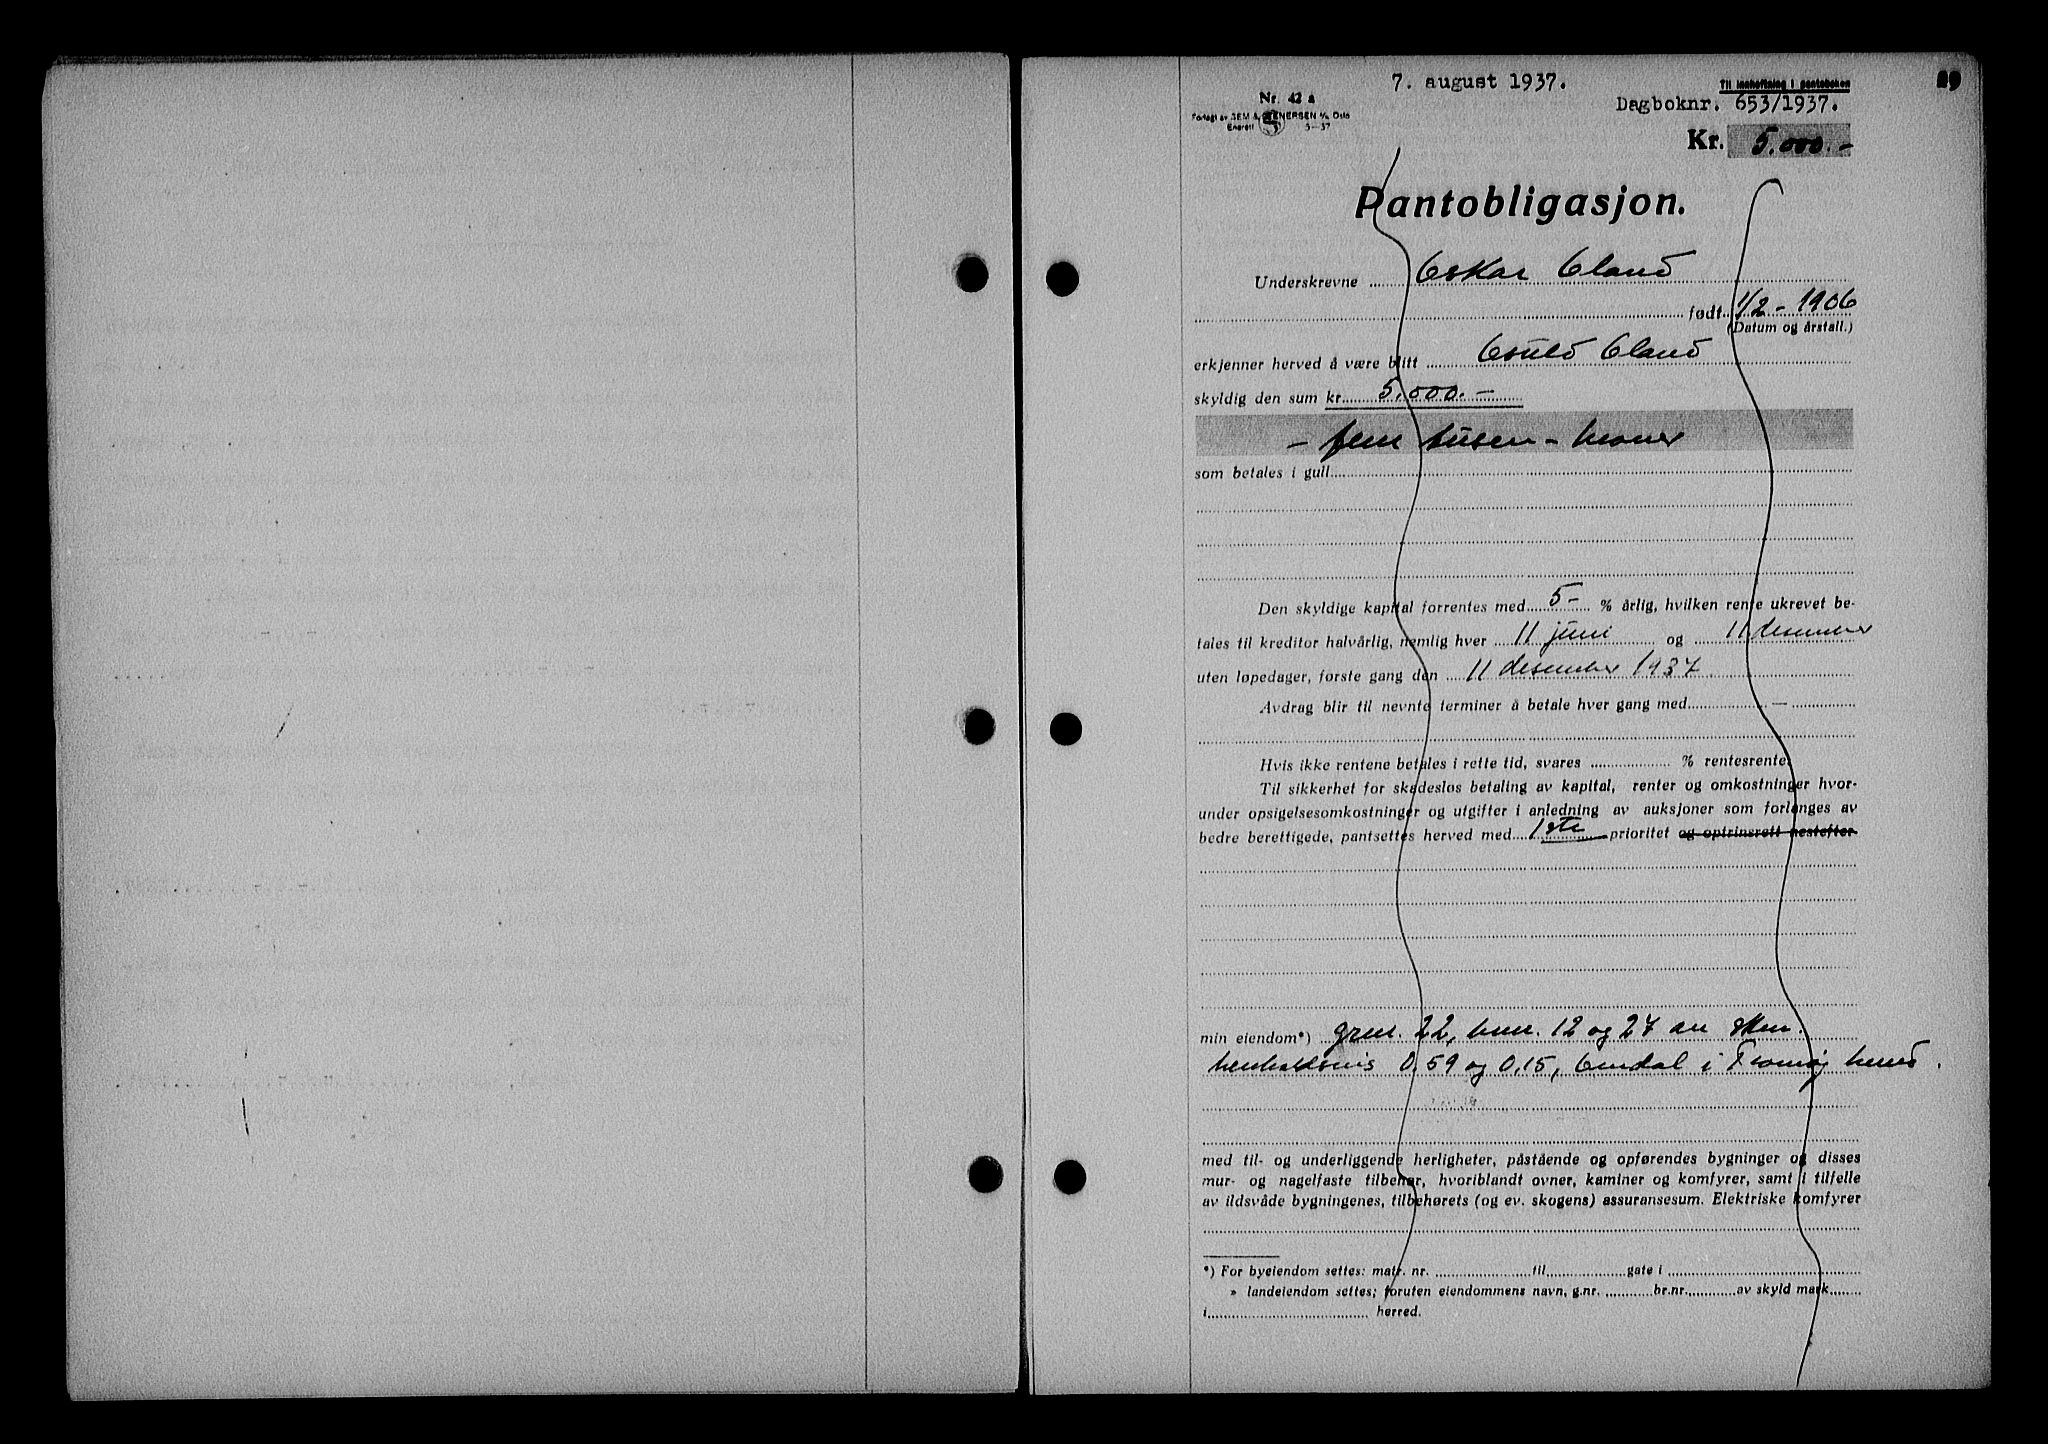 7. august 1937.
Til innheftning i panteboken
Nr. 42 a
Dagboknr. 653/1937.
Forlagt av SEM & STENERSEN A/S Oslo
Enerett 5—37
Kr. 5.000.-
Pantobligasjon.
Underskrevne Oskar Oland
født 1/2 - 1906
(Datum og årstall.)
erkjenner herved å være blitt Osuld Oland
skyldig den sum kr. 5.000.-
- fem tusen - kroner
som betales i gull
Den skyldige kapital forrentes med 5- % årlig, hvilken rente ukrevet be-
tales til kreditor halvårlig, nemlig hver 11 juni og 11 desember
uten løpedager, første gang den 11 desember 1937
Avdrag blir til nevnte terminer å betale hver gang med —
Hvis ikke rentene betales i rette tid, svares % rentesrente.
Til sikkerhet for skadesløs betaling av kapital, renter og omkostninger hvor-
under opsigelsesomkostninger og utgifter i anledning av auksjoner som forlanges av
bedre berettigede, pantsettes herved med 1ste prioritet og optrinsrett nestefter
min eiendom*) gnr. 22, bnr. 12 og 27 av skm.
henholdsvis 0,59 og 0,15, Omdal i Tromøy herred.
med til- og underliggende herligheter, påstående og opførendes bygninger og disses
mur- og nagelfaste tilbehør, hvoriblandt ovner, kaminer og komfyrer, samt i tilfelle
av ildsvåde bygningenes, tilbehørets (og ev. skogens) assuransesum. Elektriske komfyrer
*) For byeiendom settes: matr. nr. til gate i
» landeiendom settes; foruten eiendommens navn, g.nr. br.nr. av skyld mark
i herred.